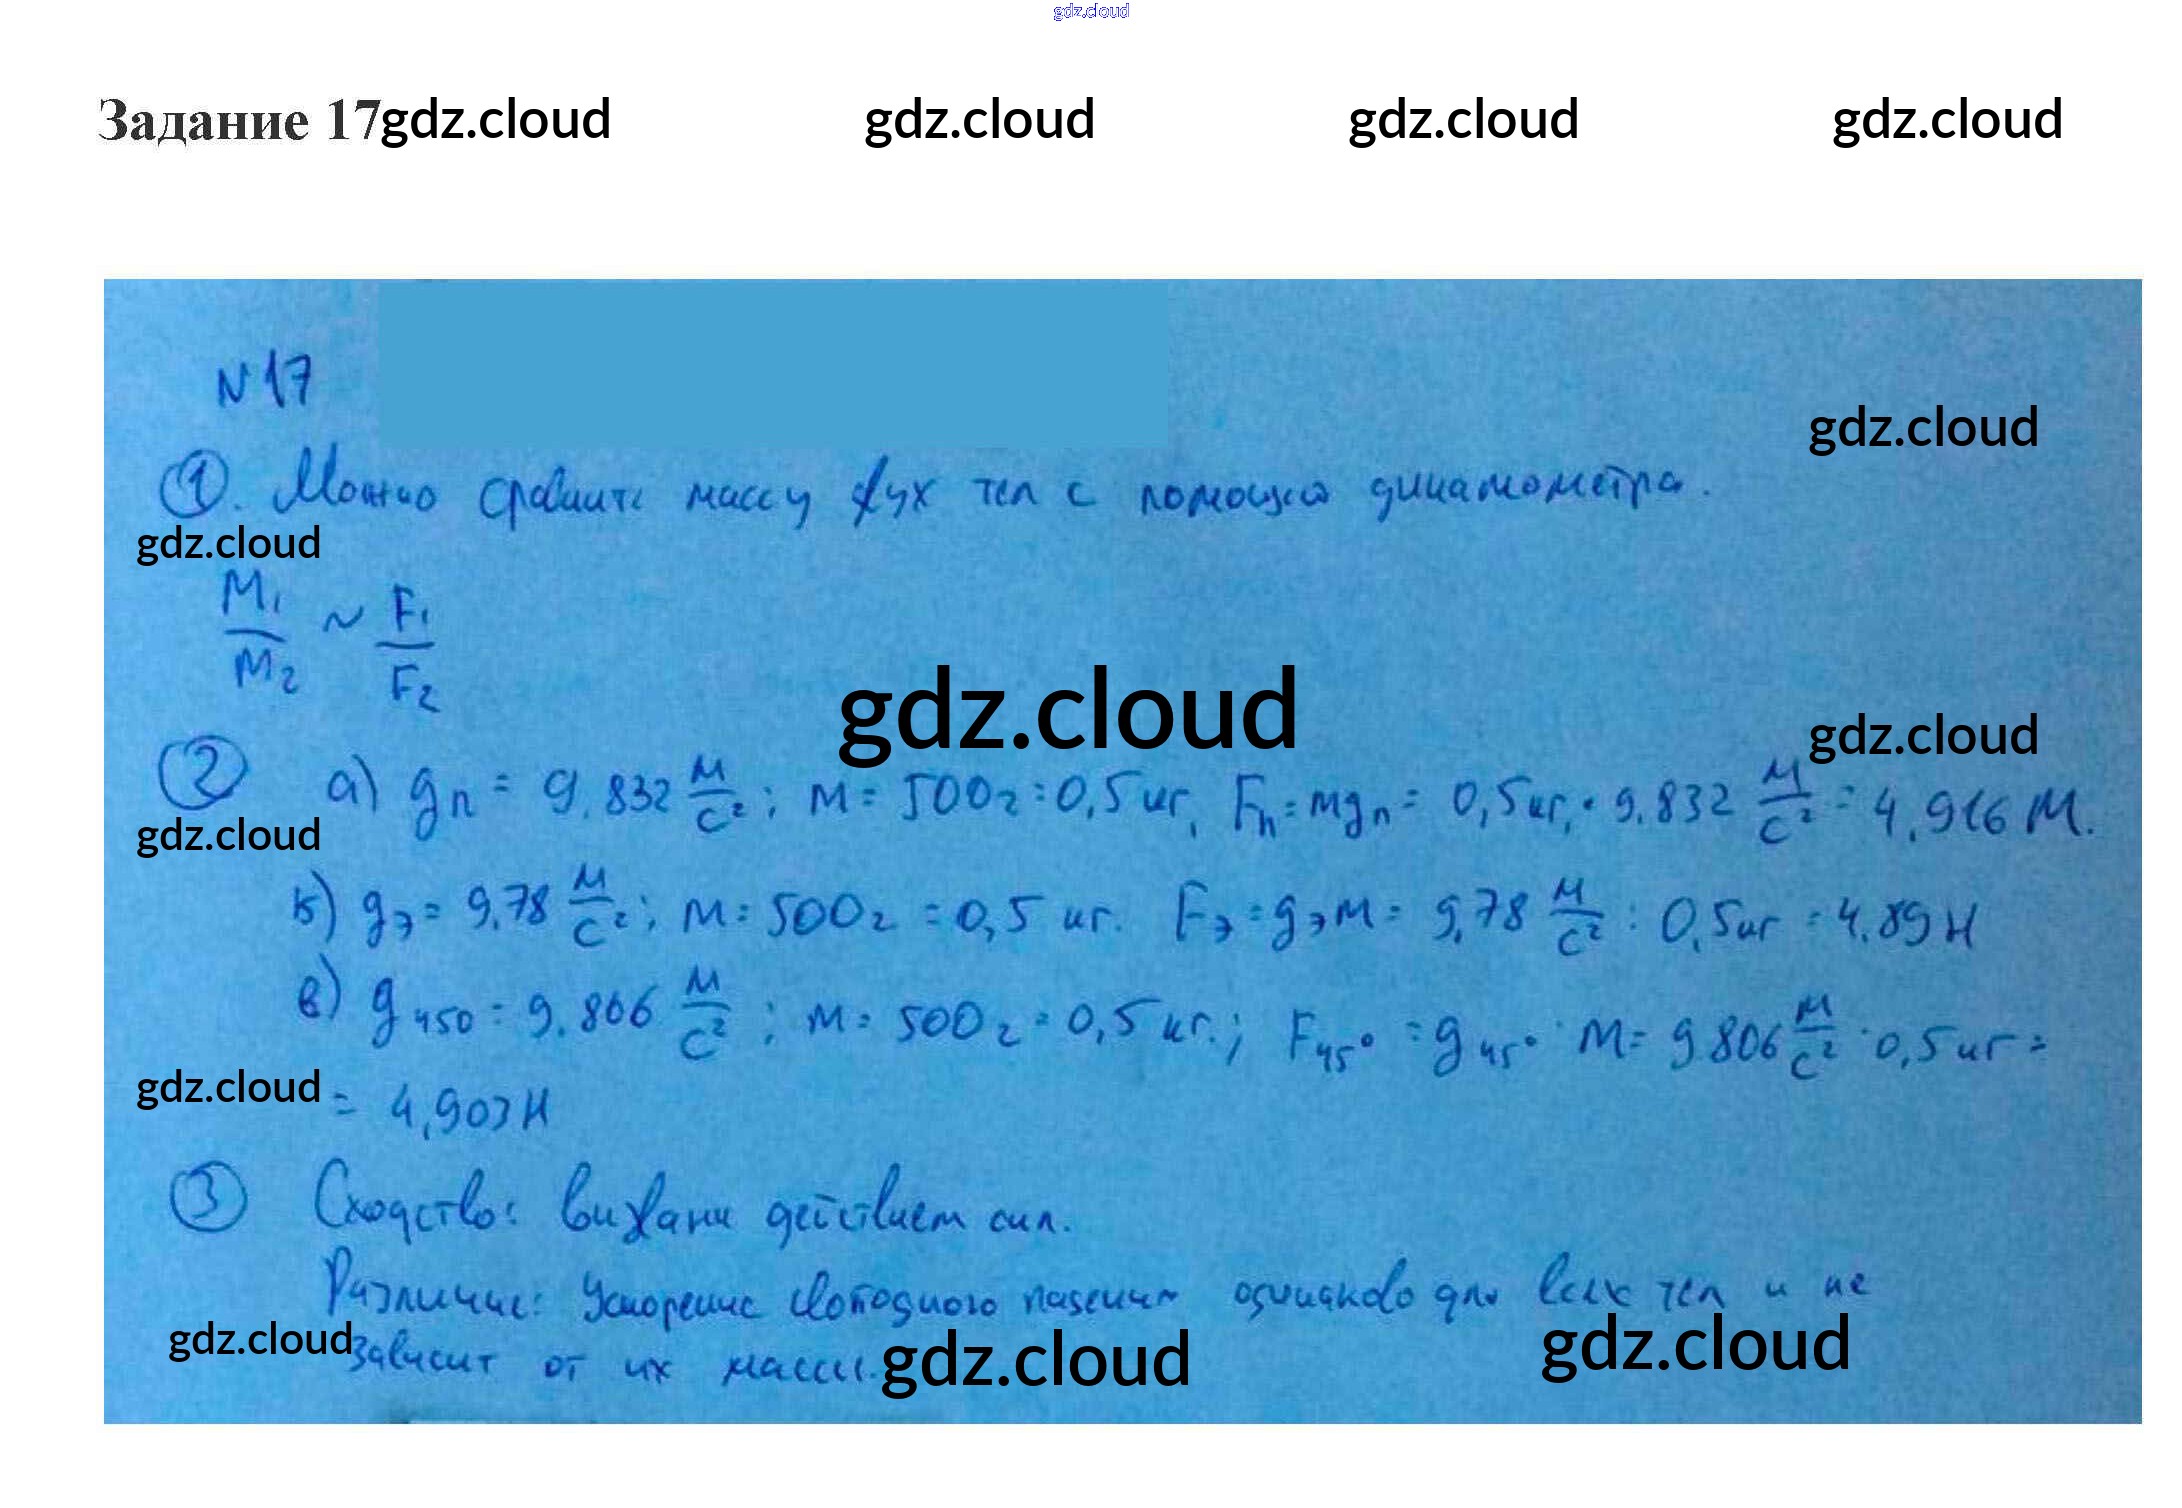 gdz.cloud
Задание 17gdz.cloud gdz.cloud gdz.cloud gdz.cloud
N 17
gdz.cloud
1. Можно сравнить массу двух тел с помощью динамометра.
gdz.cloud
M1/M2 ~ F1/F2
gdz.cloud
gdz.cloud
2 а) gп = 9.832 м/с²; м = 500г = 0,5 кг, Fп = mgп = 0,5кг · 9.832 м/с² = 4,916 М.
gdz.cloud
б) gэ = 9.78 м/с²; м = 500г = 0,5 кг. Fэ = gэм = 9.78 м/с² · 0,5кг = 4.89 Н
в) g450 = 9.806 м/с²; м = 500г = 0,5 кг.; F45° = g45° · м = 9.806 м/с² · 0,5 кг =
gdz.cloud
= 4,903 Н
3 Сходство: вызвани действием сил.
Различие: Ускорение свободного падения одинаково для всех тел и не
gdz.cloud зависит от их массы. gdz.cloud gdz.cloud